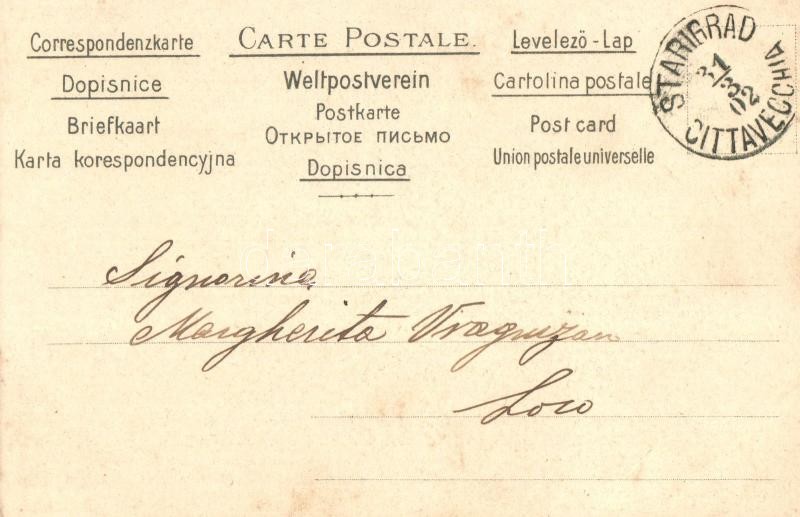 Correspondenzkarte
Dopisnice
Briefkaart
Karta korespondencyjna
CARTE POSTALE.
Weltpostverein
Postkarte
ОТКРЫТОЕ ПИСЬМО
Dopisnica
Levelező - Lap
Cartolina postale
Post card
Union postale universelle
STARIGRAD
31/3 02
CITTAVECCHIA
Signorina
Margherita
Loco